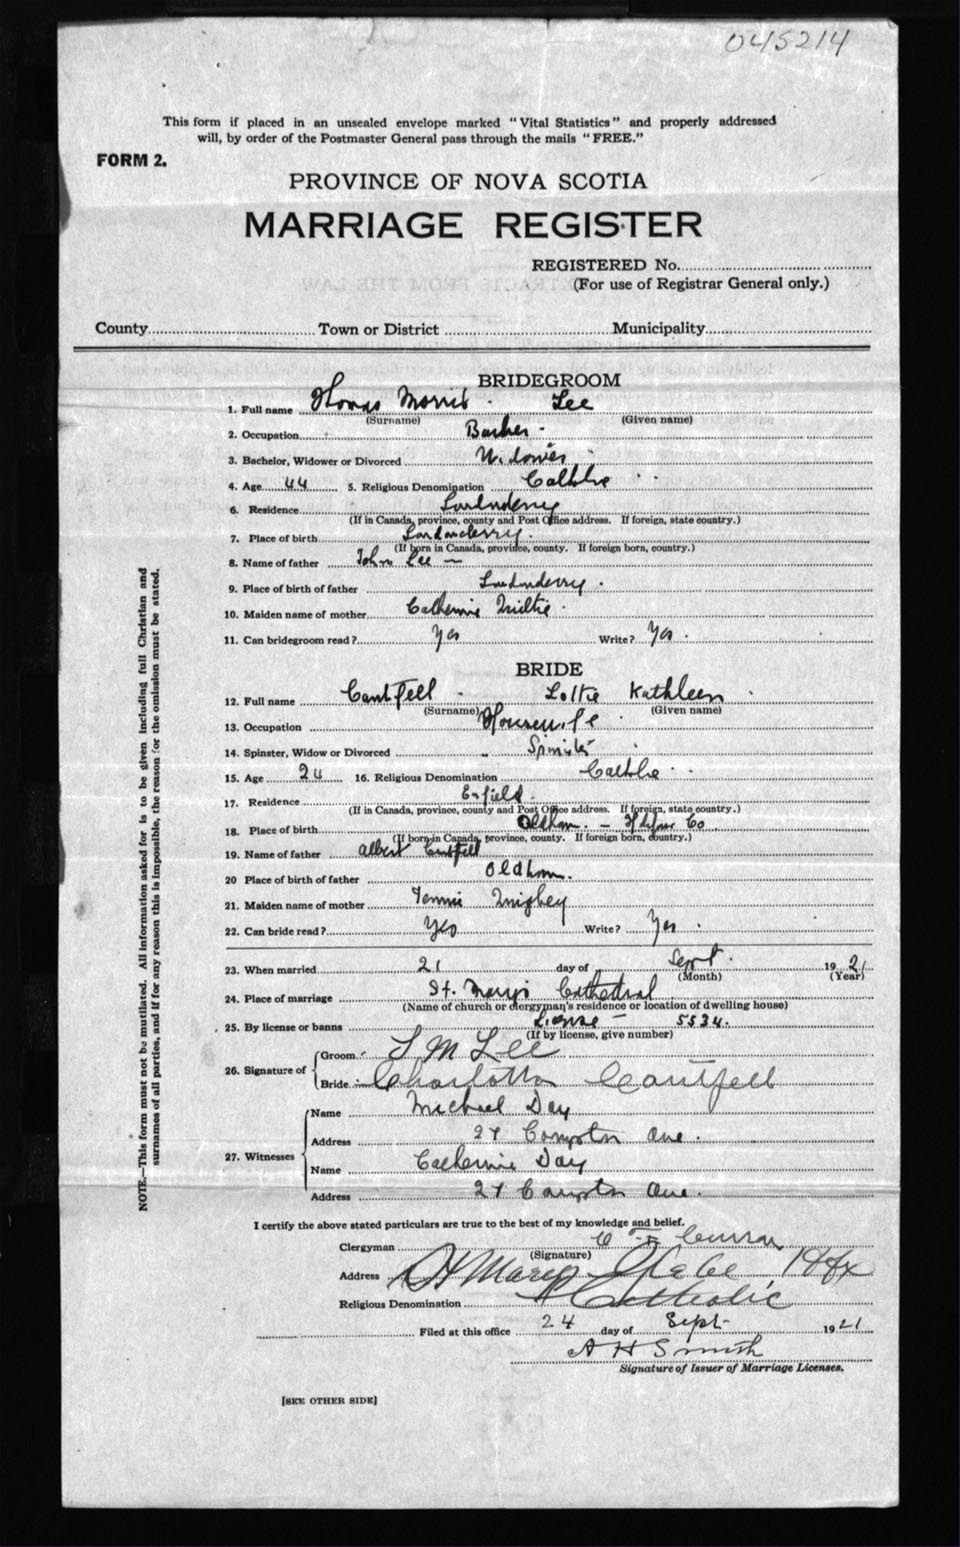 045214
This form if placed in an unsealed envelope marked "Vital Statistics" and properly addressed
will, by order of the Postmaster General pass through the mails "FREE."
FORM 2.
PROVINCE OF NOVA SCOTIA
MARRIAGE REGISTER
REGISTERED No.
(For use of Registrar General only.)
County Town or District Municipality
BRIDEGROOM
1. Full name Morris Lee
(Surname) (Given name)
2. Occupation
3. Bachelor, Widower or Divorced Widower
4. Age 44 5. Religious Denomination
6. Residence Londonderry
(If in Canada, province, county and Post Office address. If foreign, state country.)
7. Place of birth Londonderry
(If born in Canada, province, county. If foreign born, country.)
8. Name of father John Lee
9. Place of birth of father Londonderry
10. Maiden name of mother Catherine
11. Can bridegroom read? Yes Write? Yes
BRIDE
12. Full name Cantfell Lottie Kathleen
(Surname) (Given name)
13. Occupation Housewife
14. Spinster, Widow or Divorced Spinster
15. Age 24 16. Religious Denomination
17. Residence Enfield
(If in Canada, province, county and Post Office address. If foreign, state country.)
18. Place of birth Oldham - Halifax Co
(If born in Canada, province, county. If foreign born, country.)
19. Name of father Albert Cantfell
20 Place of birth of father Oldham
21. Maiden name of mother
22. Can bride read? Yes Write? Yes
23. When married 21 day of Sept 1921
(Month) (Year)
24. Place of marriage St. Mary's Cathedral
(Name of church or clergyman's residence or location of dwelling house)
25. By license or banns License - 5534
(If by license, give number)
26. Signature of
Groom M Lee
Bride Charlotta Cantfell
27. Witnesses
Name Michael Day
Address 27 Compton Ave.
Name Catherine Day
Address 27 Compton Ave.
I certify the above stated particulars are true to the best of my knowledge and belief.
Clergyman C Curran
(Signature)
Address St Marys Glebe Hfx
Religious Denomination Catholic
Filed at this office 24 day of Sept 1921
A H Smith
Signature of Issuer of Marriage Licenses.
[SEE OTHER SIDE]
NOTE.—This form must not be mutilated. All information asked for is to be given including full Christian and
surnames of all parties, and if for any reason this is impossible, the reason for the omission must be stated.